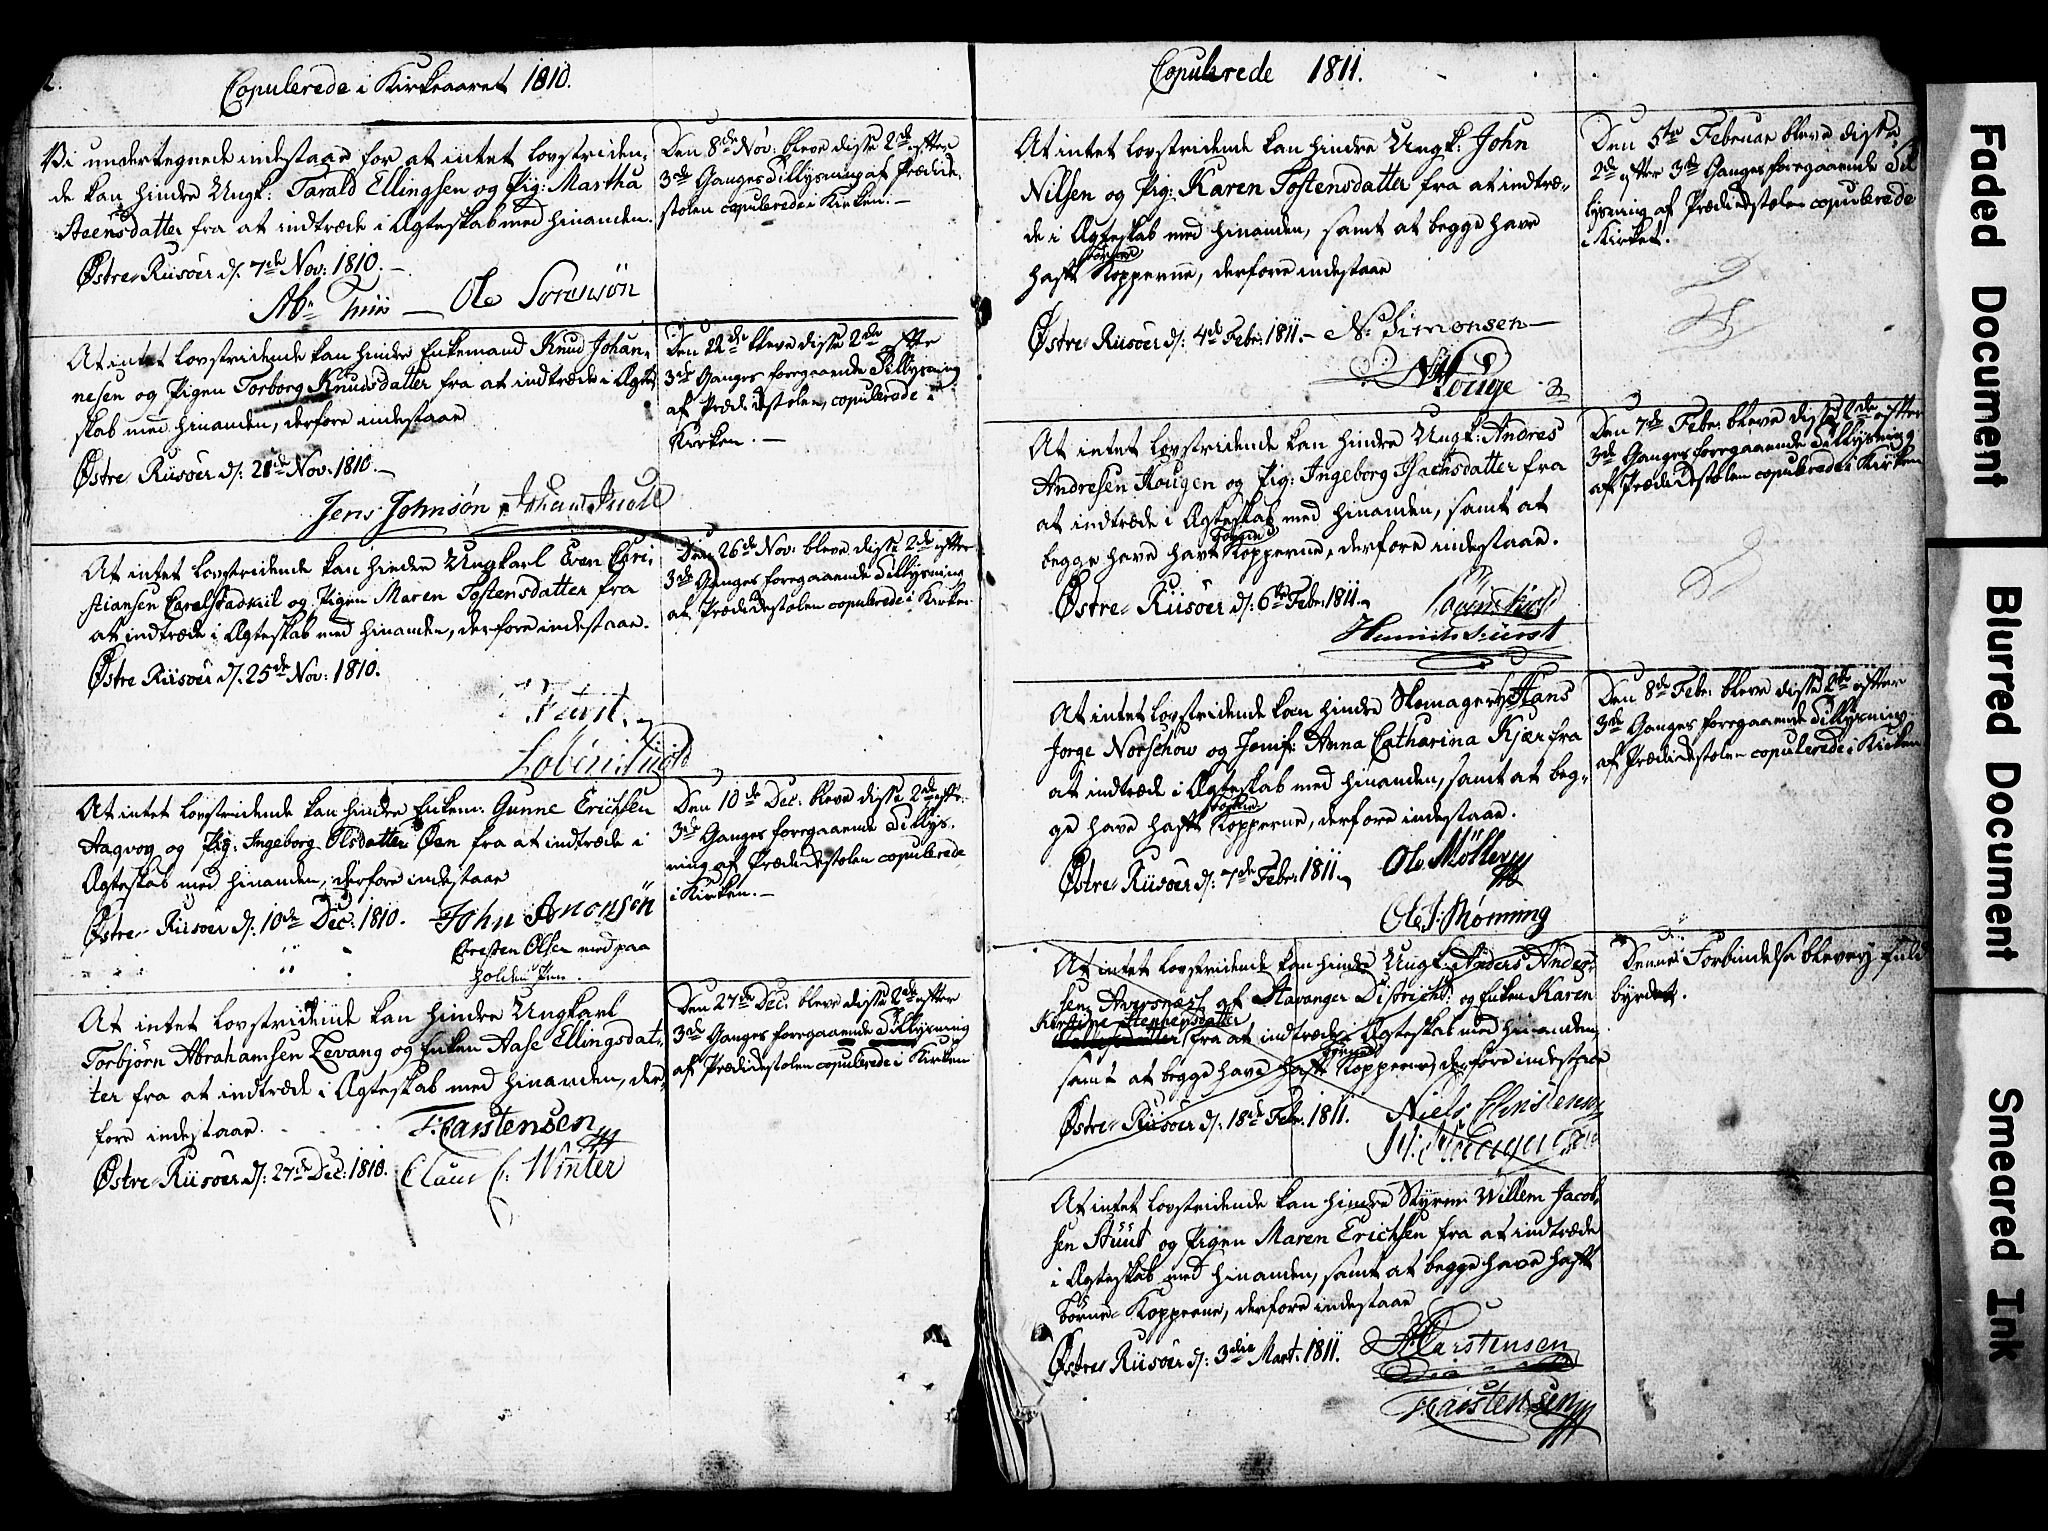 2.
Copulerede i Kirkeaaret 1810.
Vi undertegnede indestaar for at intet lovstriden-
de kan hindre Ungk: Tarald Ellingsen og Pig: Martha
Steensdatter fra at indtræde i Ægteskab med hinanden.
Østre-Riisöer d: 7de Nov: 1810.
Ole Sörensön
Den 8de Nov: bleve disse 2de efter
3de Ganges Tillysning af Prædike-
stolen copulerede i Kirken.-
At intet lovstridende kan hindre Enkemand Knud Johan-
nesen og Pigen Torborg Knudsdatter fra at indtræde i Ægte
skab med hinanden, derfore indestaar
Østre Riisöer d: 21de Nov: 1810.-
Jens Johnsön
Den 22de bleve disse 2de efte
3de Ganges foregaaende Tillysning
af Prædikestolen, copulerede i
Kirken.-
At intet lovstridende kan hindre Ungkarl Even Chri-
stiansen Carelstadkiil og Pigen Maren Tostensdatter fra
at indtræde i Ægteskab med hinanden, derfore indestaar.
Østre Riisöer d: 25de Nov: 1810.
Den 26de Nov: bleve disse 2de efter
3de Ganges foregaaende Tillysning
af Prædikestolen copulerede i Kirken
At intet lovstridende kan hindre Enkem: Gunne Erichsen
Aagvog og Pig: Ingeborg Olsdatter Øen fra at indtræde i
Ægteskab med hinanden, derfore indestaar
Østre-Riisöer d: 10de Dec: 1810.
John Aronsön
Chresten Olsen med paa
holden Pen.
Den 10de Dec: bleve disse 2de efte
3de Ganges foregaaende Tillys-
ning af Prædikestolen copulerede
i Kirken.-
At intet lovstridende kan hindre Ungkarl
Torbjörn Abrahamsen Levang og Enken Aase Ellingsdat-
ter fra at indtræde i Ægteskab med hinanden, der-
fore indestaar.
Østre-Riisöer d: 27de Dec: 1810.
Carstensen
Claus C: Winter
Den 27de Dec: bleve disse 2de efter
3de Ganges foregaaende Tillysning
af Prædikestolen copulerede i Kirken
Copulerede 1811.
At intet lovstridende kan hindre Ungk: John
Nilsen og Pig: Karen Tostensdatter fra at indtræ-
de i Ægteskab med hinanden, samt at begge have
havt Kopperne, derfore indestaar
Østre-Riisöer d: 4de Febr: 1811.- N: Simonsen
Houge
Den 5te Februar bleve disse
2de efter 3de Ganges foregaaende Til
lysning af Prædikestolen copulerede
i Kirken.
At intet lovstridende kan hindre Ungk: Andres
Andresen Hougen og Pig: Ingeborg Isachsdatter fra
at indtræde i Ægteskab med hinanden, samt at
begge have havt Kopperne, derfore indestaar.
Østre-Riisöer d: 6te Febr: 1811.
Den 7de Febr: bleve disse 2de efter
3de Ganges foregaaende Tillysning
af Prædikestolen copulerede i Kirken
At intet lovstridende kan hindre Skomager Hans
Jorge Norschow og Jomf: Anna Catharina Kjær fra
at indtræde i Ægteskab med hinanden, samt at beg-
ge have havt Kopperne, derfore indestaar.
Østre-Riisöer d: 7de Febr: 1811.
Ole Möller
Ole J: Mønning
Den 8de Febr: bleve disse 2de efter
3de Ganges foregaaende Tillysning
af Prædikestolen copulerede i Kirken
At intet lovstridende kan hindre Ungk: Anders Ander-
sen af Stavanger District: og Enken Karen
Kirstine
fra at indtræde i Ægteskab med hinanden,
samt at begge have havt Kopperne, derfore indestaar
Østre-Riisöer d: 18de Febr: 1811.
Niels Christensen
Denne Forbindelse blev ey fuld
byrdet.
At intet lovstridende kan hindre Styrm: Willem Jacob-
sen Stuut og Pigen Maren Erichsen fra at indtræde
i Ægteskab med hinanden, samt at begge have havt
Börne-Kopperne, derfore indestaar
Østre Riisöer d: 3die Mart: 1811.
Carstensen
Carstensen
Faded Document
Blurred Document
Smeared Ink